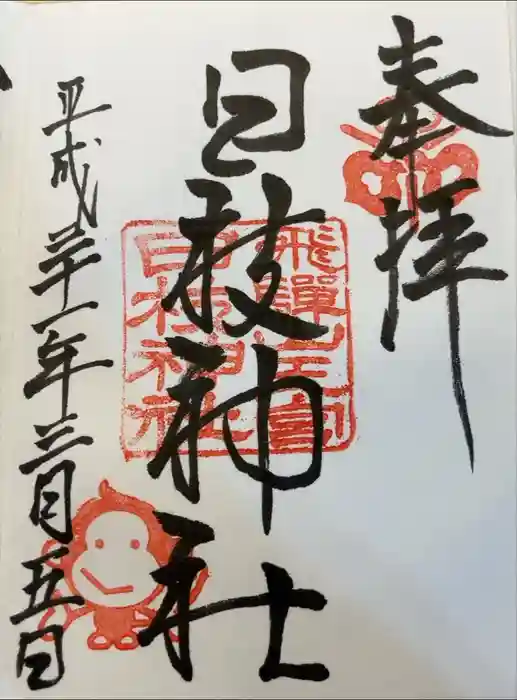 奉拝
日枝神社
飛騨山王宮
日枝神社
平成三十一年三月五日